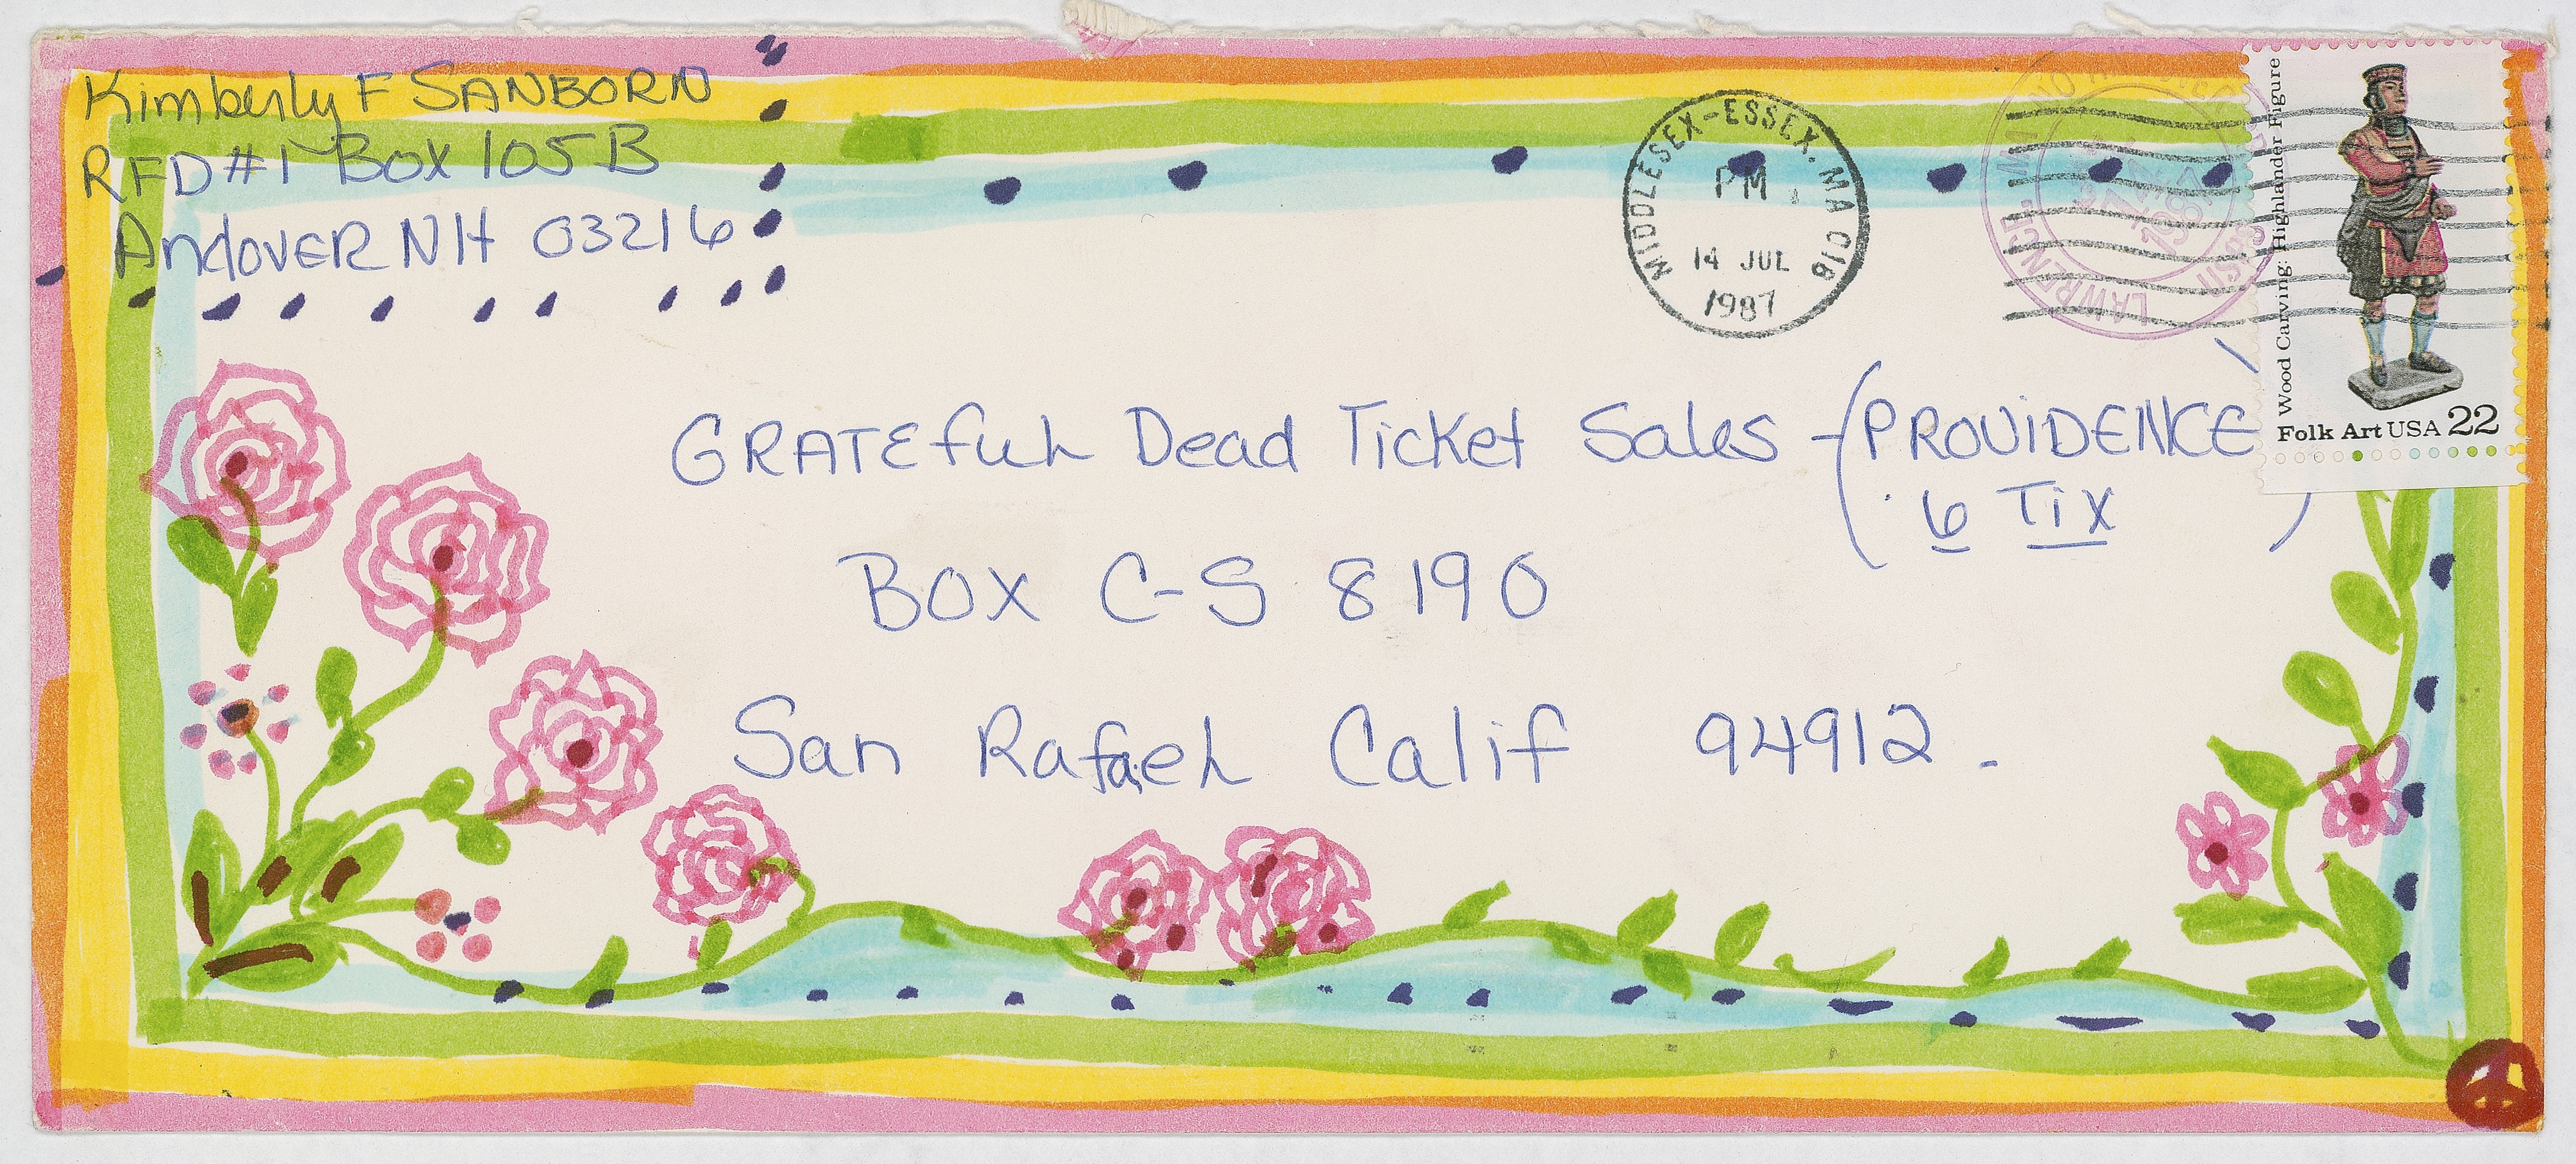 Kimberly F SANBORN
RFD #1 Box 105 B
Andover NH 03216
MIDDLESEX-ESSEX. MA 018
PM
14 JUL
1987
LAWRENCE, M
USPS
1987
Wood Carving: Highlander Figure
Folk Art USA 22
GRATEfuL Dead Ticket Sales - (PROViDENCE
6 Tix )
BOX C-S 8190
San Rafael Calif 94912.